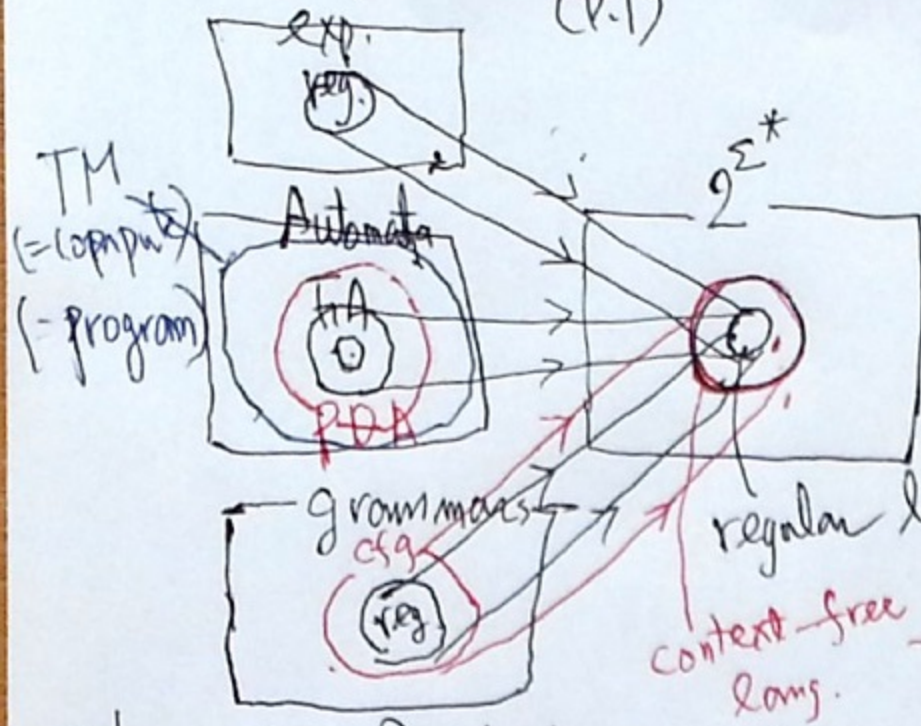 (P.1)
exp.
reg.
TM
(= (opnput)
(= program)
Automata
FA
PDA
2^Σ*
grammars
cfg
reg
regular l
context-free
lang.